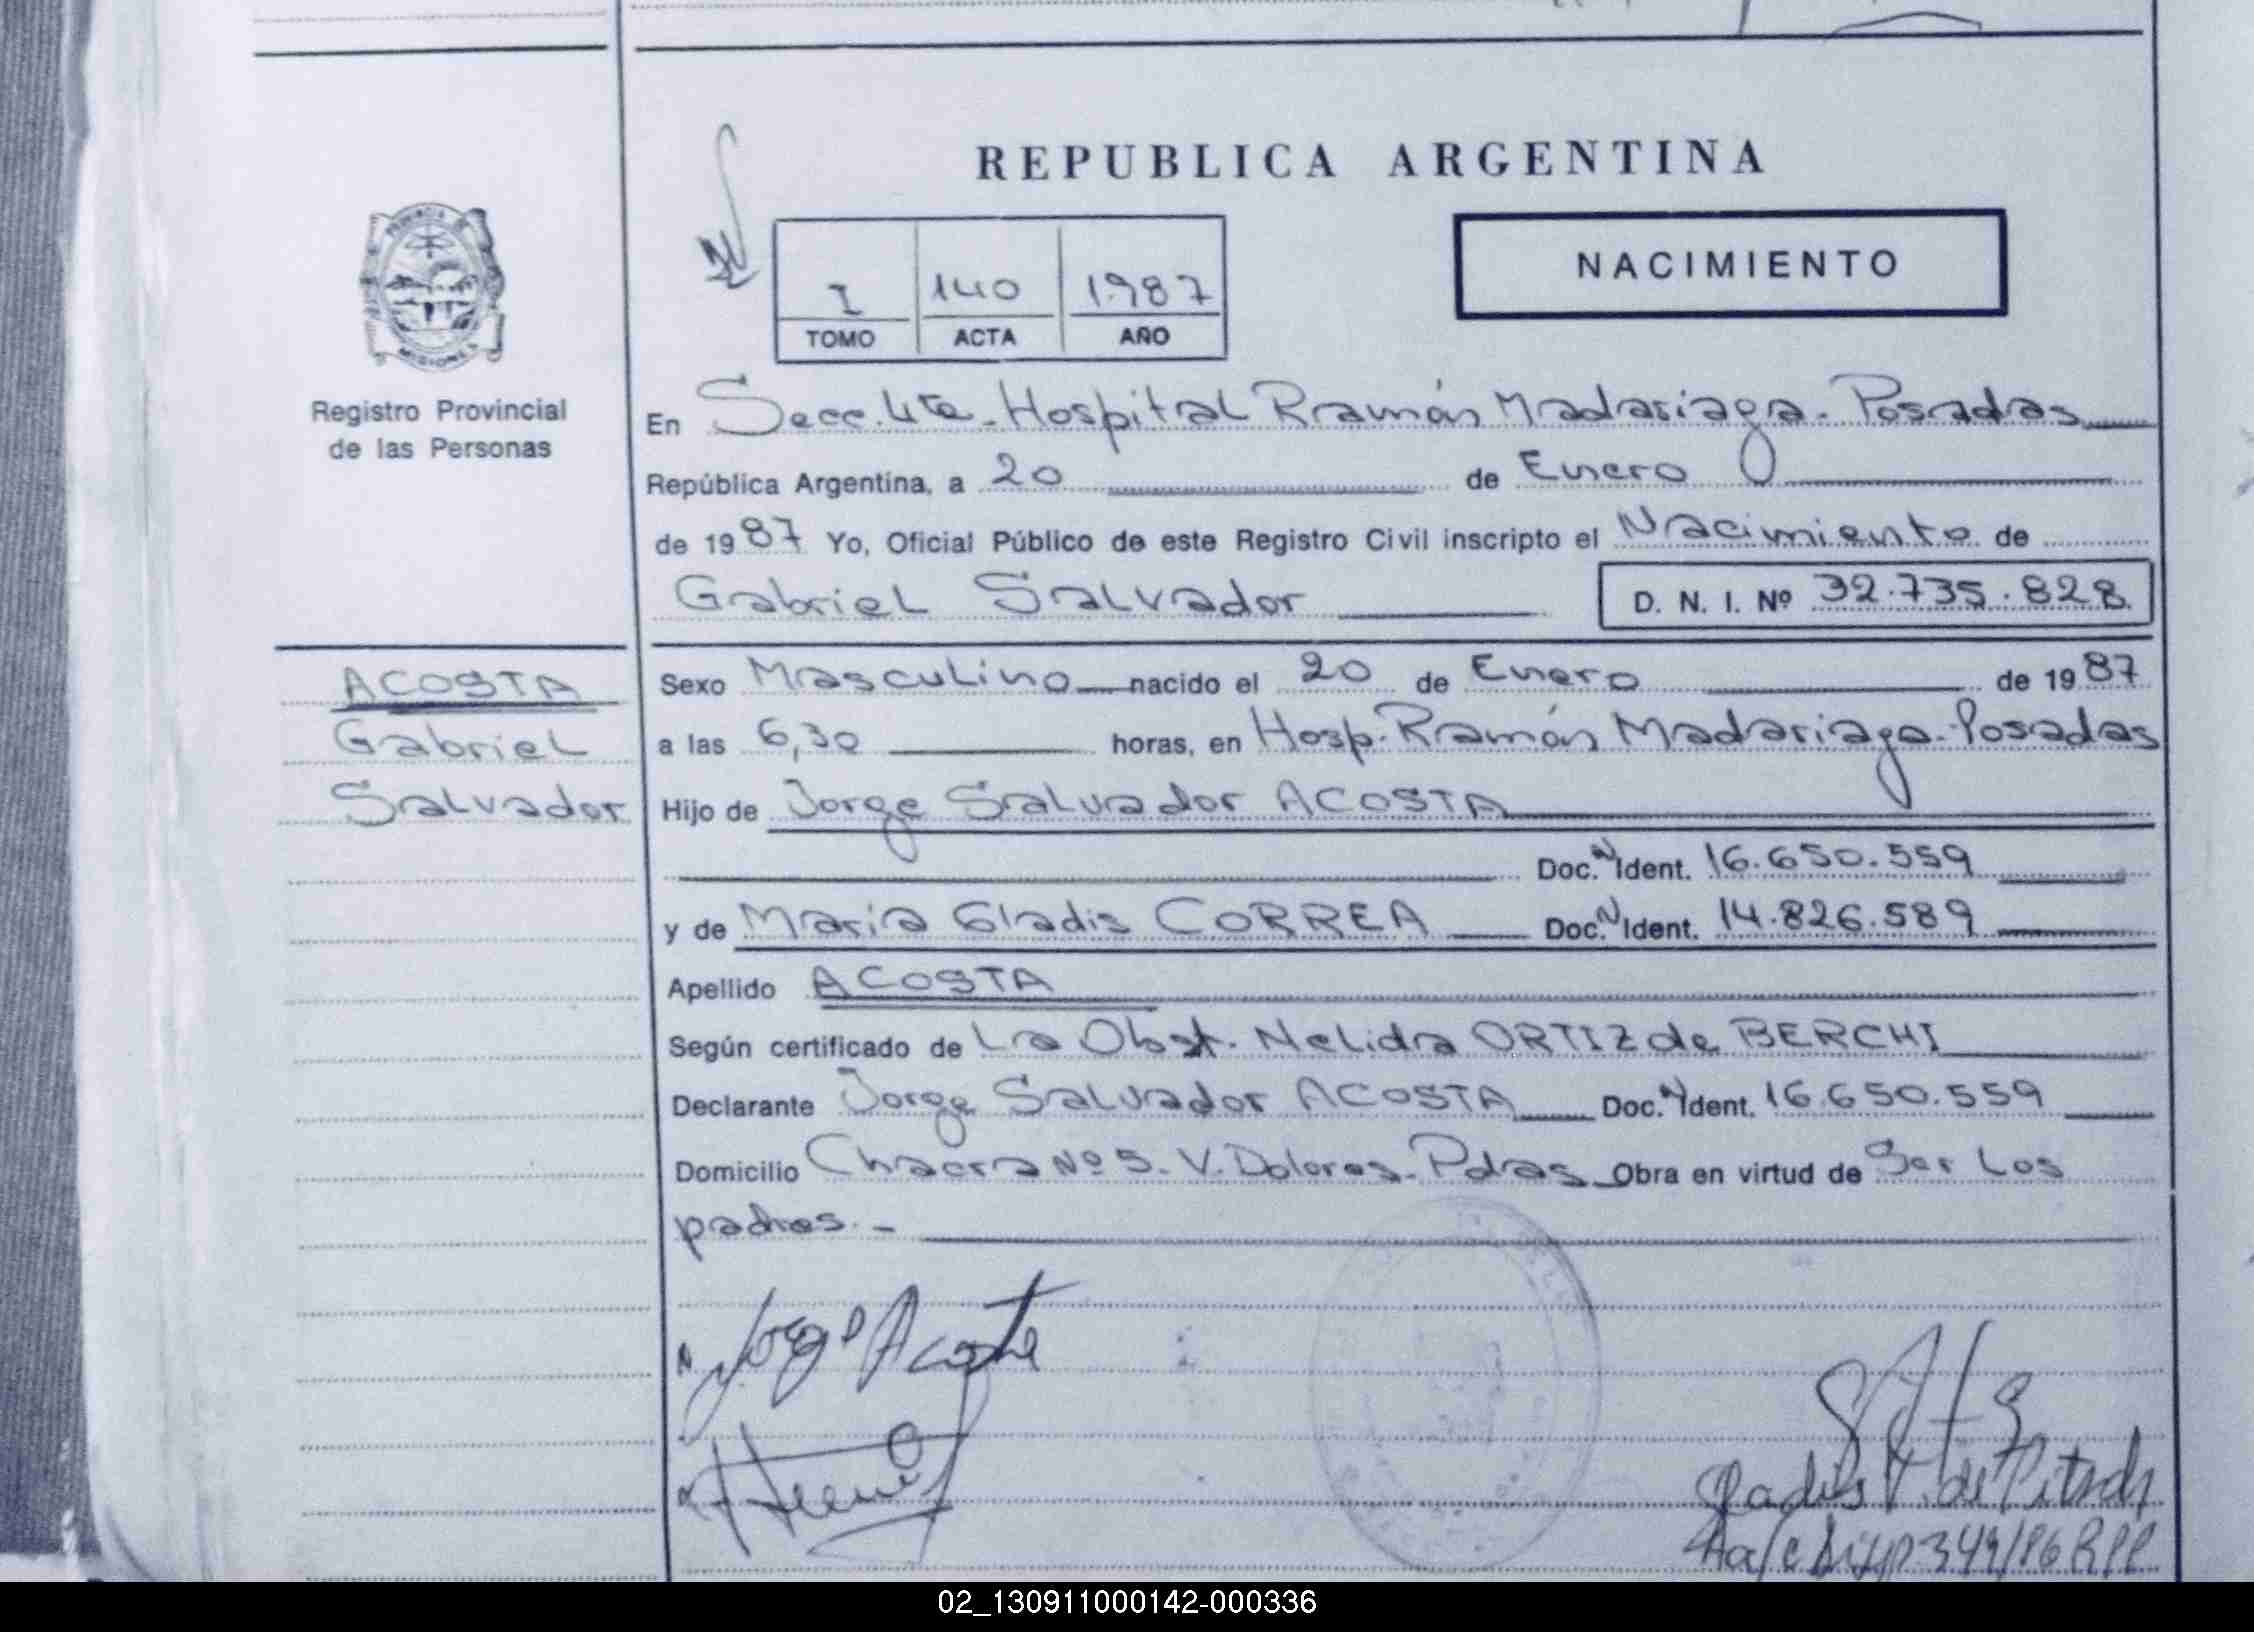 REPUBLICA ARGENTINA
NACIMIENTO
I 140 1987
TOMO ACTA AÑO
PROVINCIA DE MISIONES
Registro Provincial
de las Personas
En Secc. 4ta - Hospital Ramón Madariaga - Posadas
República Argentina, a 20 de Enero
de 1987 Yo, Oficial Público de este Registro Civil inscripto el Nacimiento de
Gabriel Salvador D. N. I. Nº 32.735.828
ACOSTA
Gabriel
Salvador
Sexo Masculino nacido el 20 de Enero de 1987
a las 6,30 horas, en Hosp. Ramón Madariaga - Posadas
Hijo de Jorge Salvador ACOSTA
Doc. N Ident. 16.650.559
y de María Gladis CORREA Doc. N Ident. 14.826.589
Apellido ACOSTA
Según certificado de La Obst. Nelida ORTIZ de BERCHI
Declarante Jorge Salvador ACOSTA Doc. N Ident. 16.650.559
Domicilio Chacra Nº 5. V. Dolores - Pdas Obra en virtud de Ser Los
padres. -
Jorge Acosta
Gladis de Pitsch
02_130911000142-000336